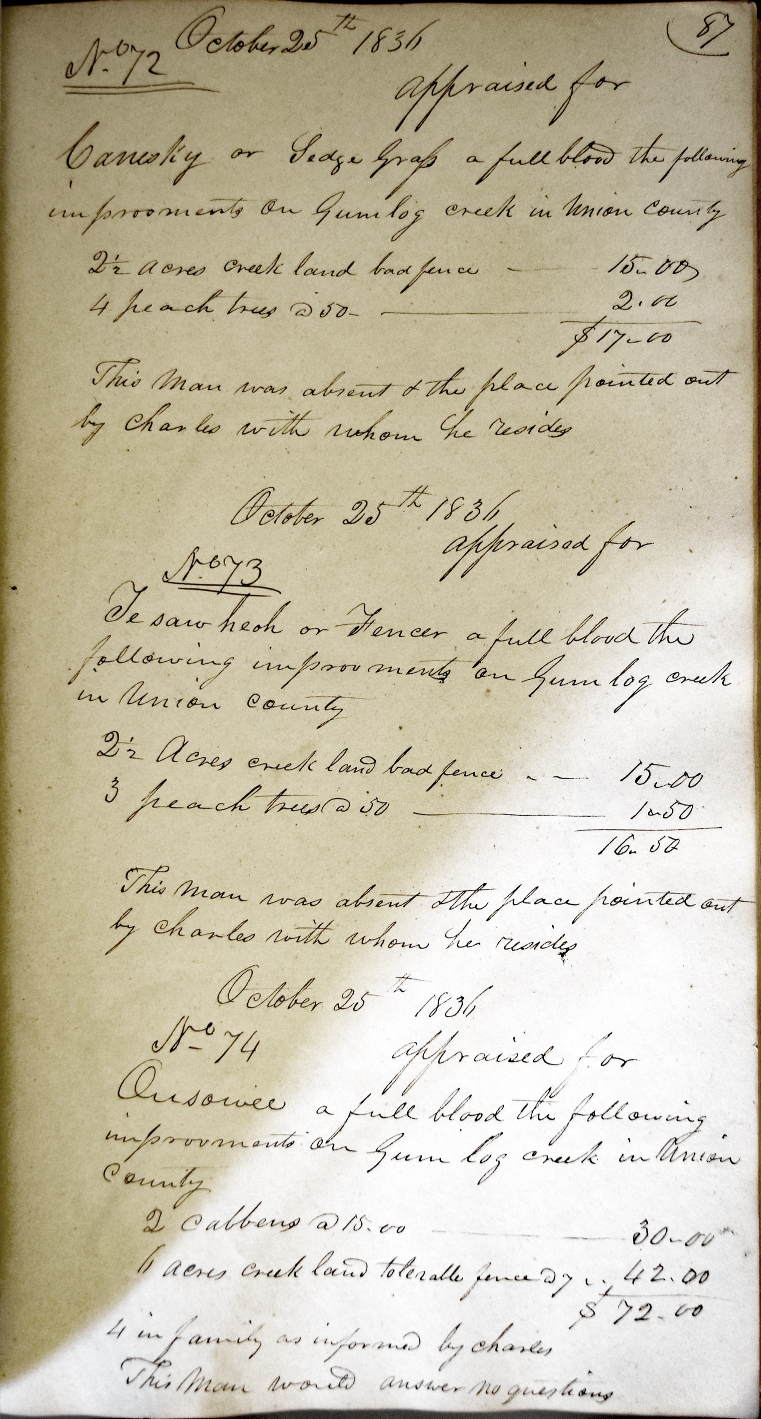 87
October 25th 1836
No 72
appraised for
Canesky or Sedge Grass a full blood the following
improoments on Gumlog creek in Union County
2½ Acres creek land bad fence — 15.00
4 peach trees @ 50 — 2.00
$17.00
This man was absent & the place pointed out
by Charles with whom he resides
October 25th 1836
appraised for
No 73
Te saw heoh or Fencer a full blood the
following improvments on Gum log creek
in Union County
2½ Acres creek land bad fence — 15.00
3 peach trees @ 50 — 1.50
16.50
This man was absent & the place pointed out
by Charles with whom he resides
October 25th 1836
No 74
appraised for
Ousowee a full blood the following
improvments on Gum log creek in Union
County
2 cabbens @ 15.00 — 30.00
6 acres creek land tolerable fence @ 7 .. 42.00
$72.00
4 in family as informed by Charles
This man would answer no questions